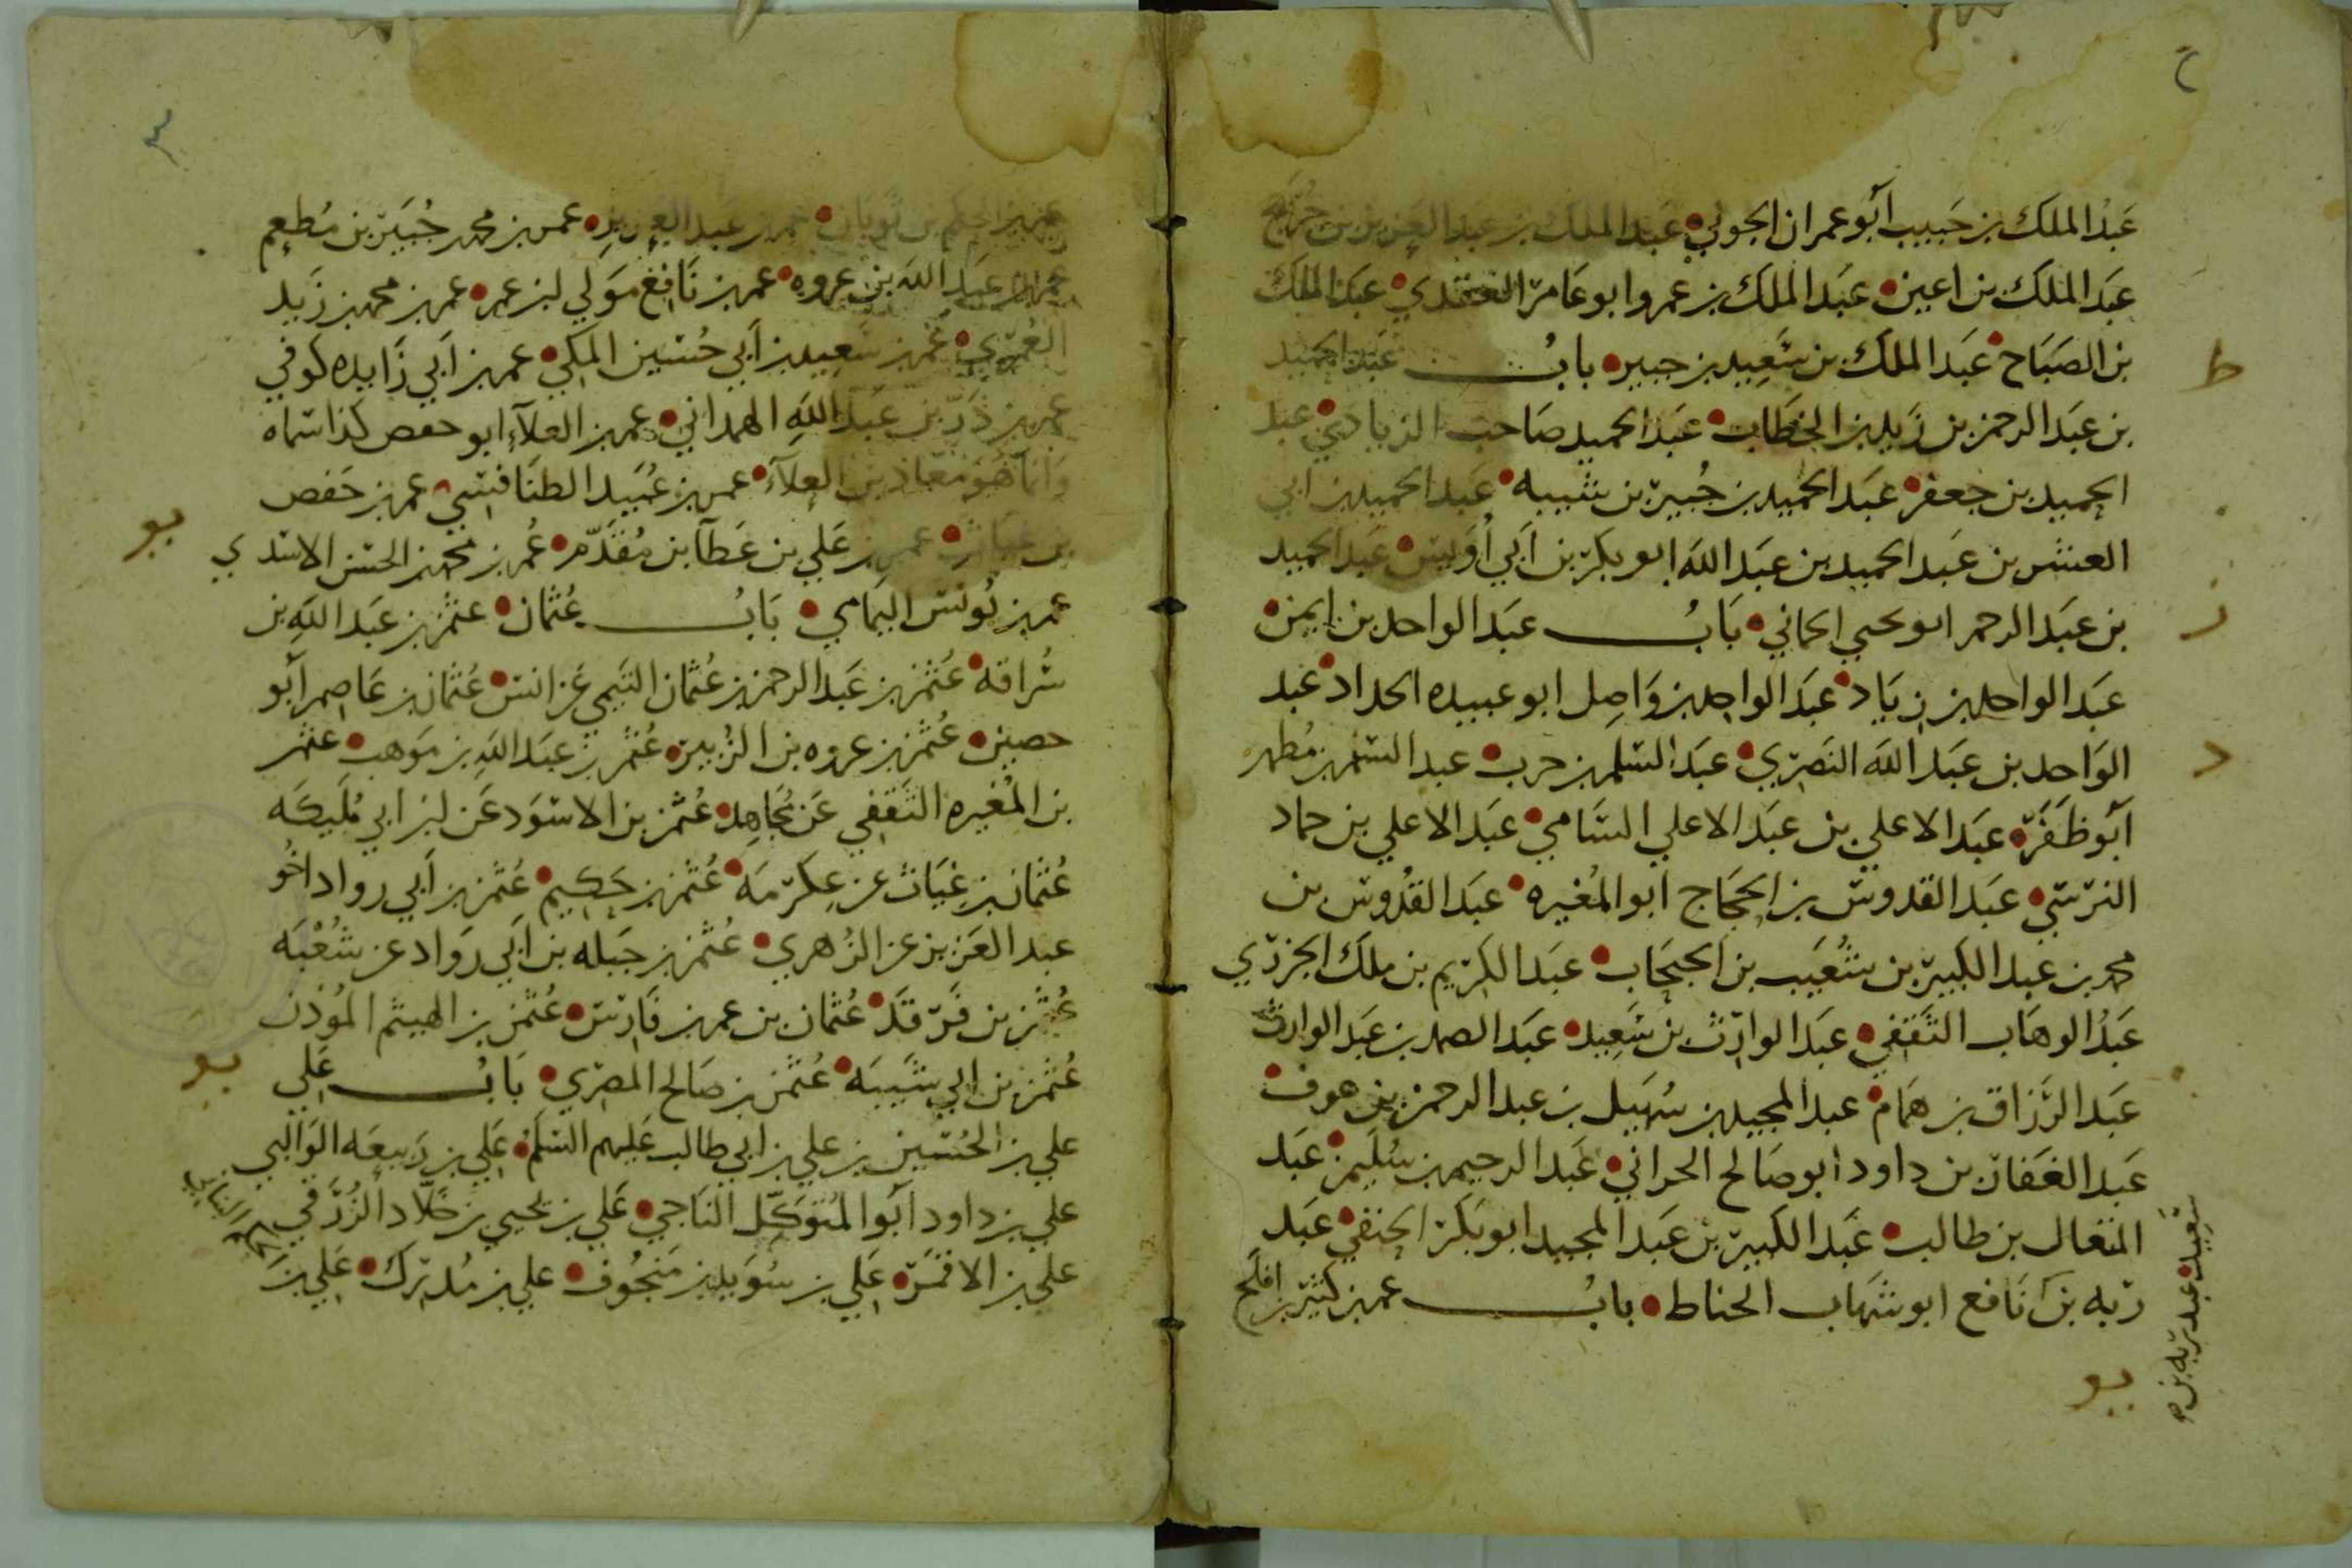 عَبْدُ الملك بن حَبيب أبو عمران الجوني • عَبد الملك بن عبد العزيز بن جُرَيج
عَبَد الملك بن اعين • عَبَد الملك بن عمرو ابو عَامر العقدي • عبَد الملك
بن الصَبَاح • عَبَد الملك بن سَعِيد بن جبير • بابُ عَبَد الحميد
بن عَبَد الرحمن بن زَيد بن الخطاب • عَبَد الحميد صَاحب الزيادي • عبد
الحميد بن جعفر • عَبَد الحَميد بن جُبير بن شيبه • عَبَد الحميد بن ابي
العنس بن عَبَد الحميد بن عَبَد الله ابو بكر بن أَبي أُوَيس • عَبَد الحميد
بن عَبَد الرحمن ابو يحيى الحماني • بَابُ عبَد الواحد بن ايمن •
عَبَد الواحد بن زيَاد • عَبَد الواحد بن وَاصِل ابو عبيده الحداد • عَبد
الوَاحد بن عَبَد الله النَصري • عبَد السلم بن حرب • عبد السلم بن مُطهر
أبو ظَفَر • عَبَد الاعلي بن عَبَد الاعلي السَامي • عبَد الاعلي بن حماد
النرسي • عَبَد القدوس بن الحجَاج ابو المُغيره • عبَد القُدوس بن
محمد بن عبد الكبير بن شُعَيب بن الحبحَاب • عبَد الكريم بن ملك الجزري
عَبَدُ الوهاب الثَقفي • عبَد الوارث بن سَعِيد • عبَد الصمد بن عَبَد الوارث
عَبَد الرزاق بن همَام • عبد المجيد بن سُهَيل بن عبد الرحمن بن عوف •
عَبَد الغَفار بن داود ابو صَالح الحراني • عَبَد الرحيم بن سُلَيمن • عَبَد
المتعال بن طالب • عَبَد الكبير بن عَبَد المجيد ابو بكر الحنفي • عَبَد
ربه بن نَافع ابو شهَاب الحناط • بابُ عمر بن كثير بن افلح
سَعِيد • عبد ربه بن
يو
عمر بن الحكم بن ثوبان • عمر بن عَبَد العزيز • عمر بن محمد جُبَير بن مُطعِم
عمر بن عَبَد الله بن عروه • عمر بن نَافِع مَوَلي ابن عمر • عمر بن محمد بن زَيد
العُمَري • عُمر بن سَعِيد بن أَبي حُسَين المكي • عمر بن أَبي زَايده كوفي
عمر بن ذَرّ بن عَبَد اللهِ الهمداني • عمر بن العلآءِ ابو حفص كذا سَماه
وَانمآ هُوَ مُعَاذ بن العلآء • عمر بن عُبَيد الطنَافسي • عمر بن حَفص
بن غيَاث • عمر بن عَلي بن عَطآ بن مُقَدَّم • عُمر بن محمد بن الحسن الاسَدي
عمر بن يُونس اليَمامي • بَابُ عُثمَان • عثمن بن عَبَد اللهِ بن
سُراقه • عُثمن بن عَبَد الرحمن بن عُثمان التَيمي عَن انس • عُثمَان بن عَاصِم أبو
حصين • عُثمن بن عروه بن الزُبير • عُثمن بن عبَد اللهِ بن مَوَهب • عثمن
بن المُغيره الثَقَفي عَن مُجَاهِد • عُثمن بن الاسَوَد عَن ابن ابي مُلَيكَه
عُثمَان بن غِيَاث عن عِكرمَه • عُثمن بن حَكِيم • عُثمن بن أَبي رواد اخُو
عبد العَزيز عن الزُهري • عُثمن بن جَبَله بن أَبي رَواد عن شُعْبَه
عُثمن بن فَرّقَد • عُثمان بن عمر بن فَارس • عُثمن بن الهيثم المُؤذن
عُثمن بن ابي شَيبَه • عُثمن بن صَالح المصري • بَابُ عَلي
علي بن الحُسَين بن علي بن ابي طالب عَليهم السَلَم • عَلي بن رَبيعَه الوَالبي
علي بن داود أبوا المُتَوكِّل النَاجي • عَلي بن يحيي بن خَلّاد الزُرَقي •
علي بن الاقمَر • عَلي بن سُوَيد بن مَنجُوف • علي بن مُدرك • عَلي بن
يو
يو